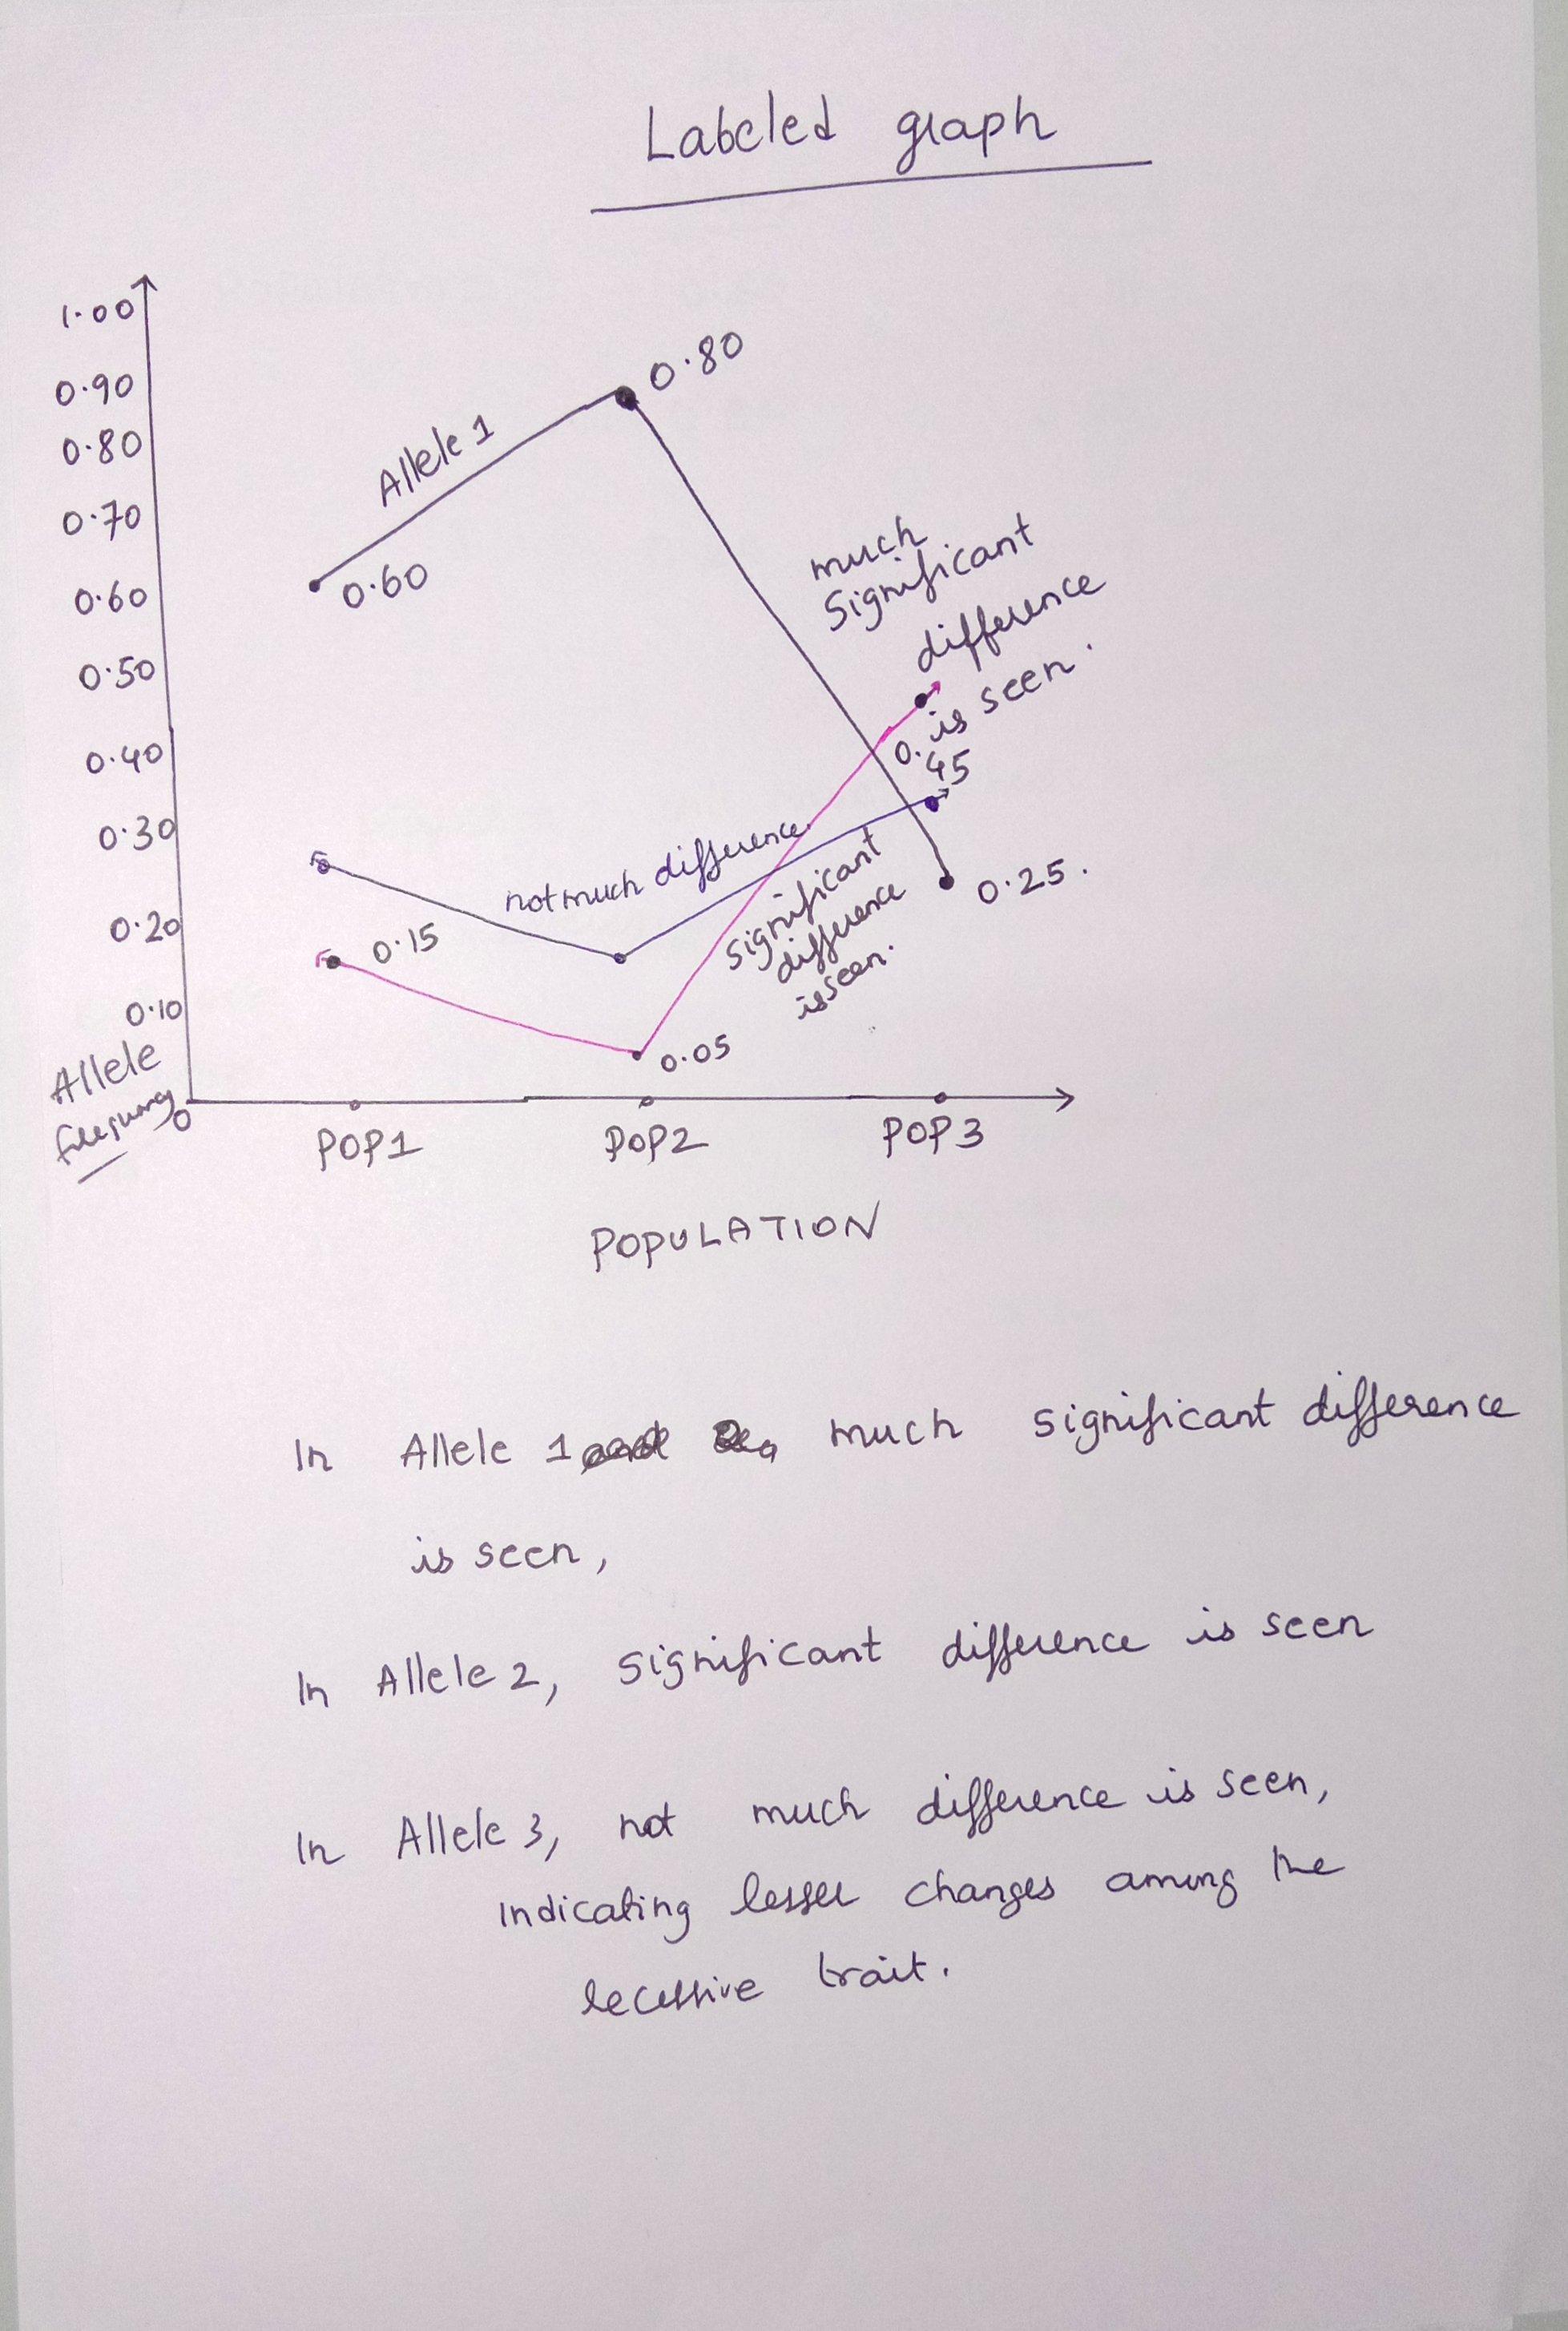 Labeled graph
1.00
0.90
0.80
0.70
0.60
0.50
0.40
0.30
0.20
0.10
0
Allele
frequency
Allele 1
0.60
0.80
much
significant
difference
is seen.
0.45
0.25.
not much difference
significant
difference
is seen.
0.15
0.05
POP1 POP2 POP3
POPULATION
In Allele 1 much significant difference
is seen,
In Allele 2, significant difference is seen
In Allele 3, not much difference is seen,
indicating lesser changes among the
recessive trait.